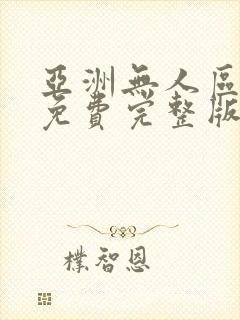 亞洲無人區
免費完整版
樸智恩